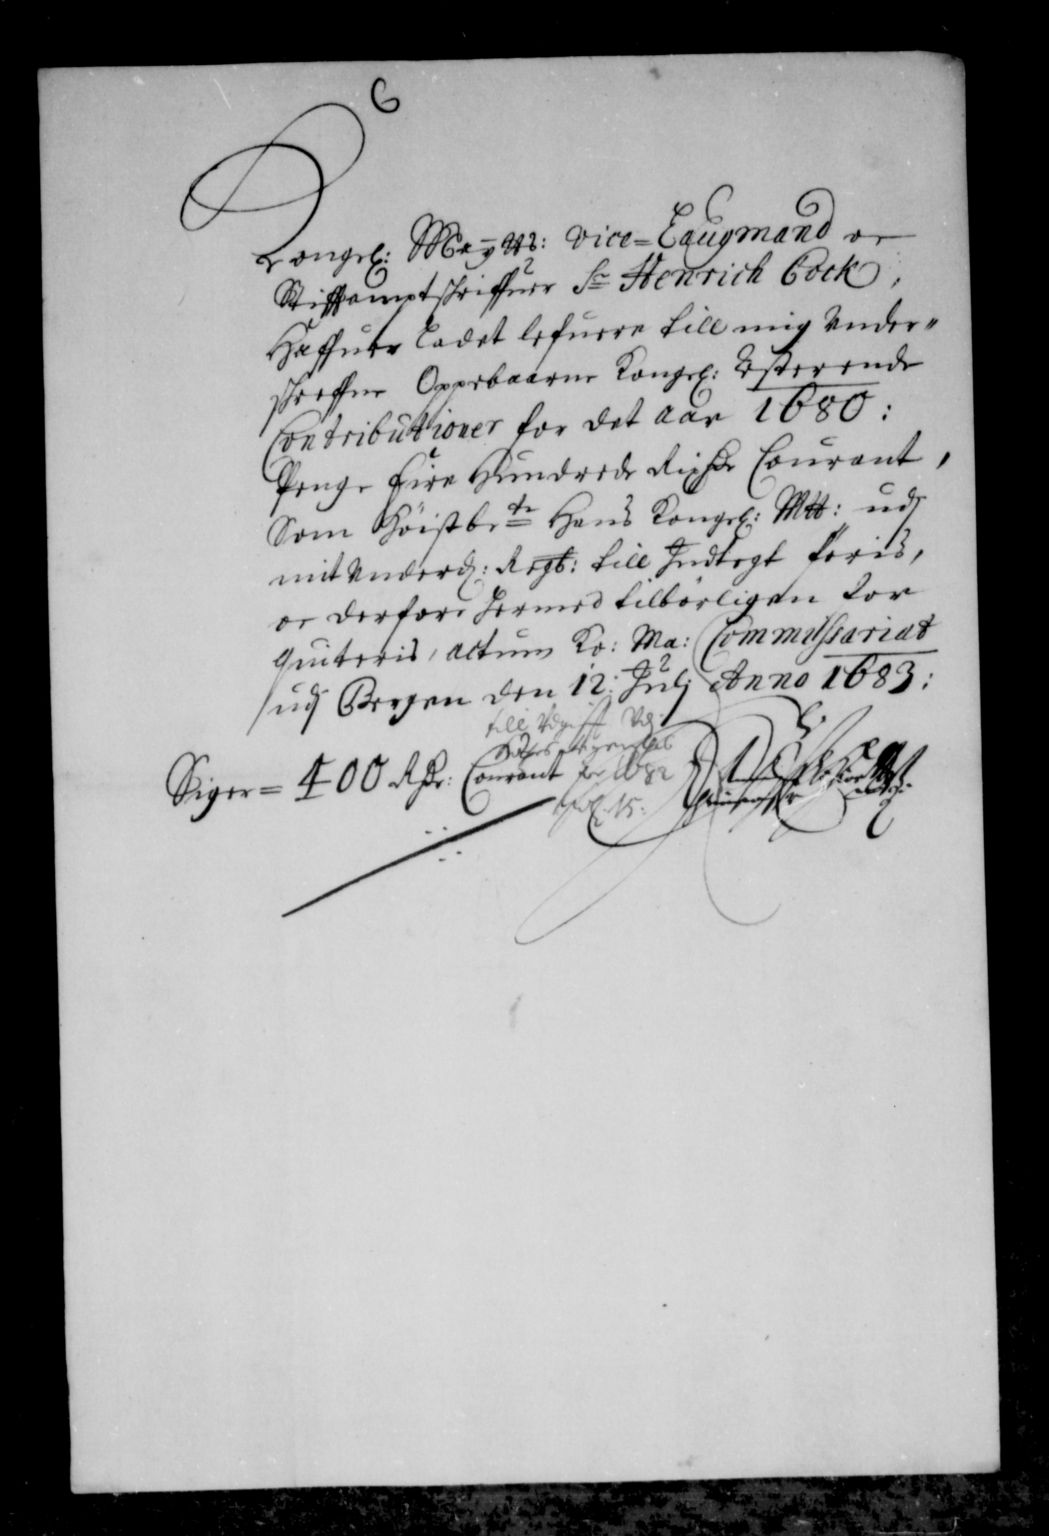 6
Kongel: May:tts: vice=Laugmand oc
Stiftsamptschriffuer Sr Henrich Cock,
Haffuer Ladet lefuere till mig Under=
schreffne Oppebaarne Kongel: Resterende
Contributioner for det aar 1680:
Penge fire Hundrede Rixdr Courant,
Som höistbete Hans Kongel: Mtt: udj
mit Underd: Regb: till Indtegt föris,
oc derfore hermed tilbörligen vor
quiteris, actum Ko: Ma: Commissariat
udj Bergen den 12: Julj Anno 1683:
till Udgifft udj
for 1682
fol. 15:
Siger= 400 Rdr: Courant